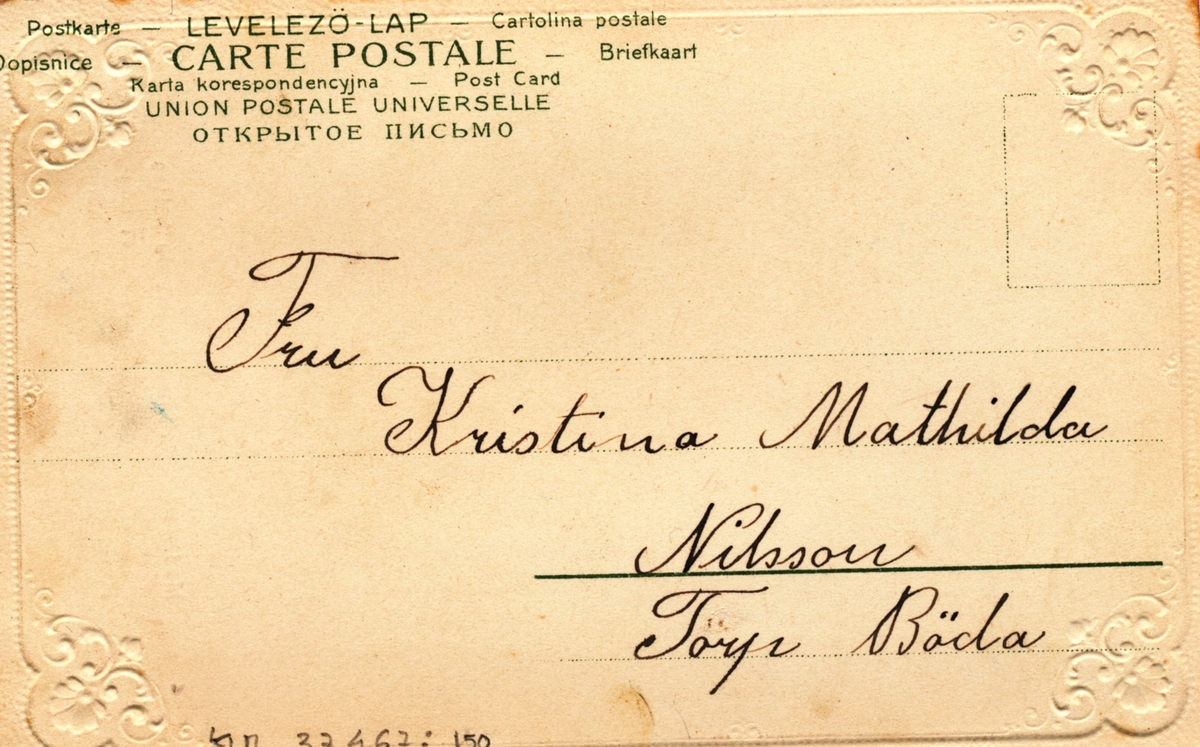 Postkarte — LEVELEZÖ-LAP — Cartolina postale
Dopisnice — CARTE POSTALE — Briefkaart
Karta korespondencyjna — Post Card
UNION POSTALE UNIVERSELLE
ОТКРЫТОЕ ПИСЬМО
Fru
Kristina Mathilda
Nilsson
Torp Böda
37467:150